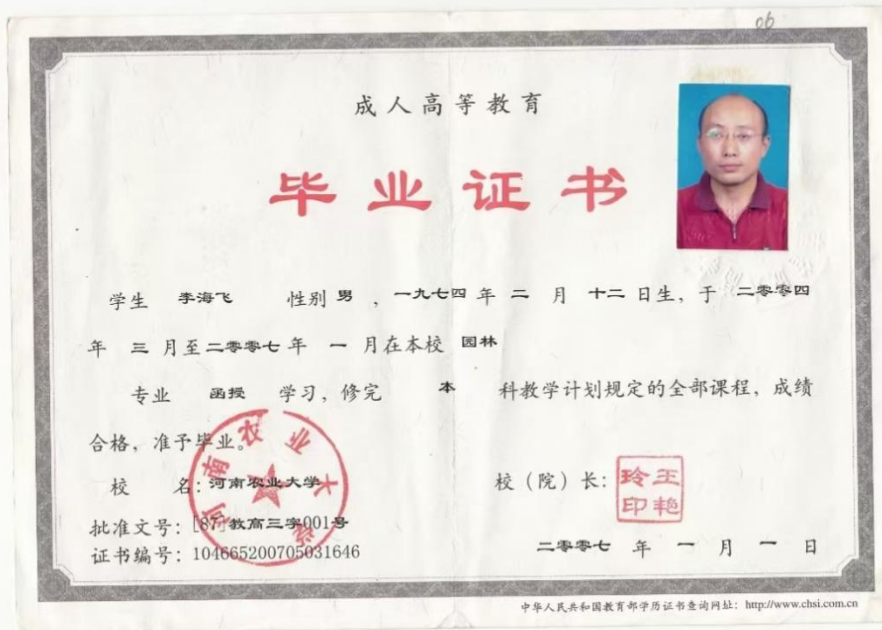 06
成人高等教育
毕业证书
学生 李海飞 性别 男 ，一九七四 年 二 月 十二 日生，于 二零零四
年 三 月至 二零零七 年 一 月在本校 园林
专业 函授 学习，修完 本 科教学计划规定的全部课程，成绩
合格，准予毕业。
河南农业大学
校 名：河南农业大学
校（院）长：
王艳玲印
批准文号：[87]教高三字001号
证书编号：104665200705031646
二零零七 年 一 月 一 日
中华人民共和国教育部学历证书查询网址：http://www.chsi.com.cn